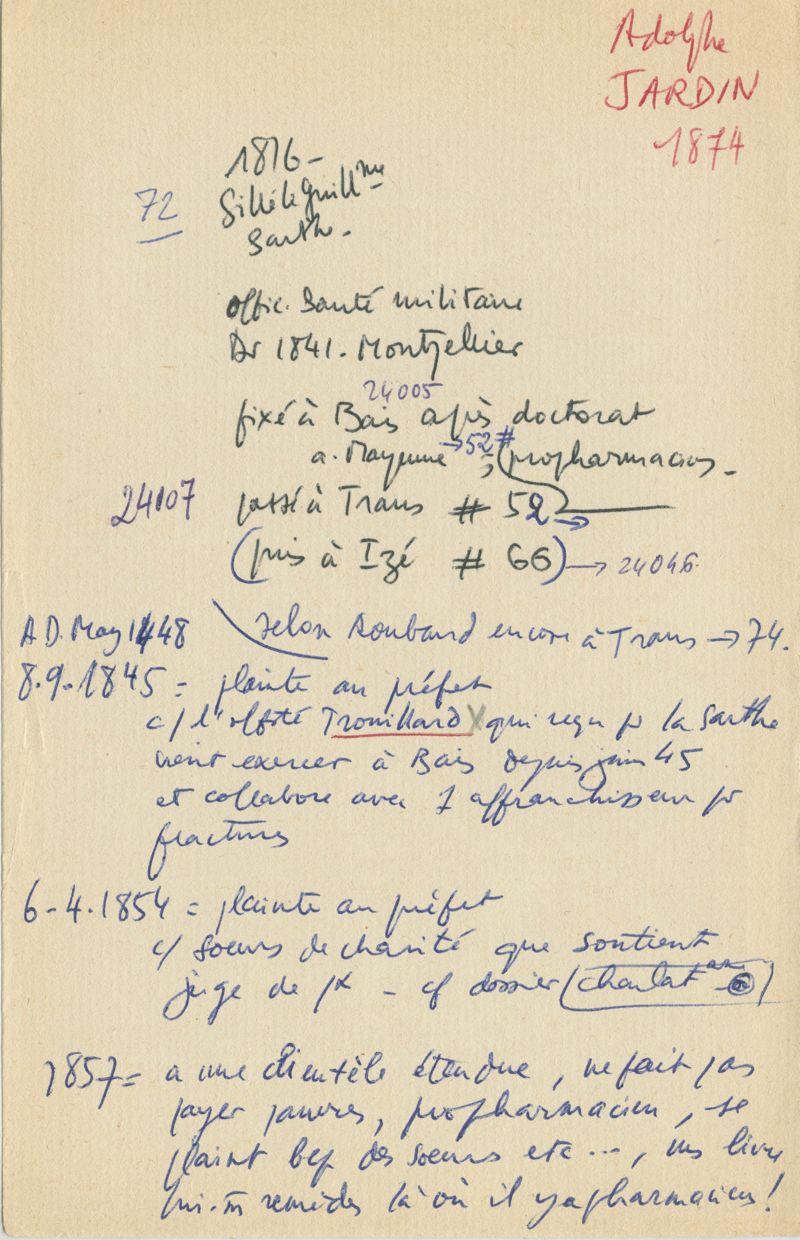 Adolphe
JARDIN
1874
1816 -
72
Sillé le Guill^me
Sarthe.
offic. Santé militaire
Dr 1841. Montpellier
24005
fixé à Bais après doctorat
a. Mayenne → 52 # ; (propharmacien.
24107 passé à Trans # 52 →
(puis à Izé # 66) → 24046
A D. May 1448 selon Roubaud encore à Trans → 74.
8.9.1845 = plainte au préfet
c/ l'offsté Trouillard X qui reçu pr la Sarthe
vient exercer à Bais depuis juin 45
et collabore avec 1 affranchisseur pr
fractures
6-4.1854 = plainte au préfet
c/ soeurs de charité que soutient
juge de px - cf dossier (charlat^an)
1857 = a une clientèle étendue, ne fait pas
payer pauvres, propharmacien, se
plaint bcp des soeurs etc ..., ms livre
lui-m remèdes là où il y a pharmaciens!